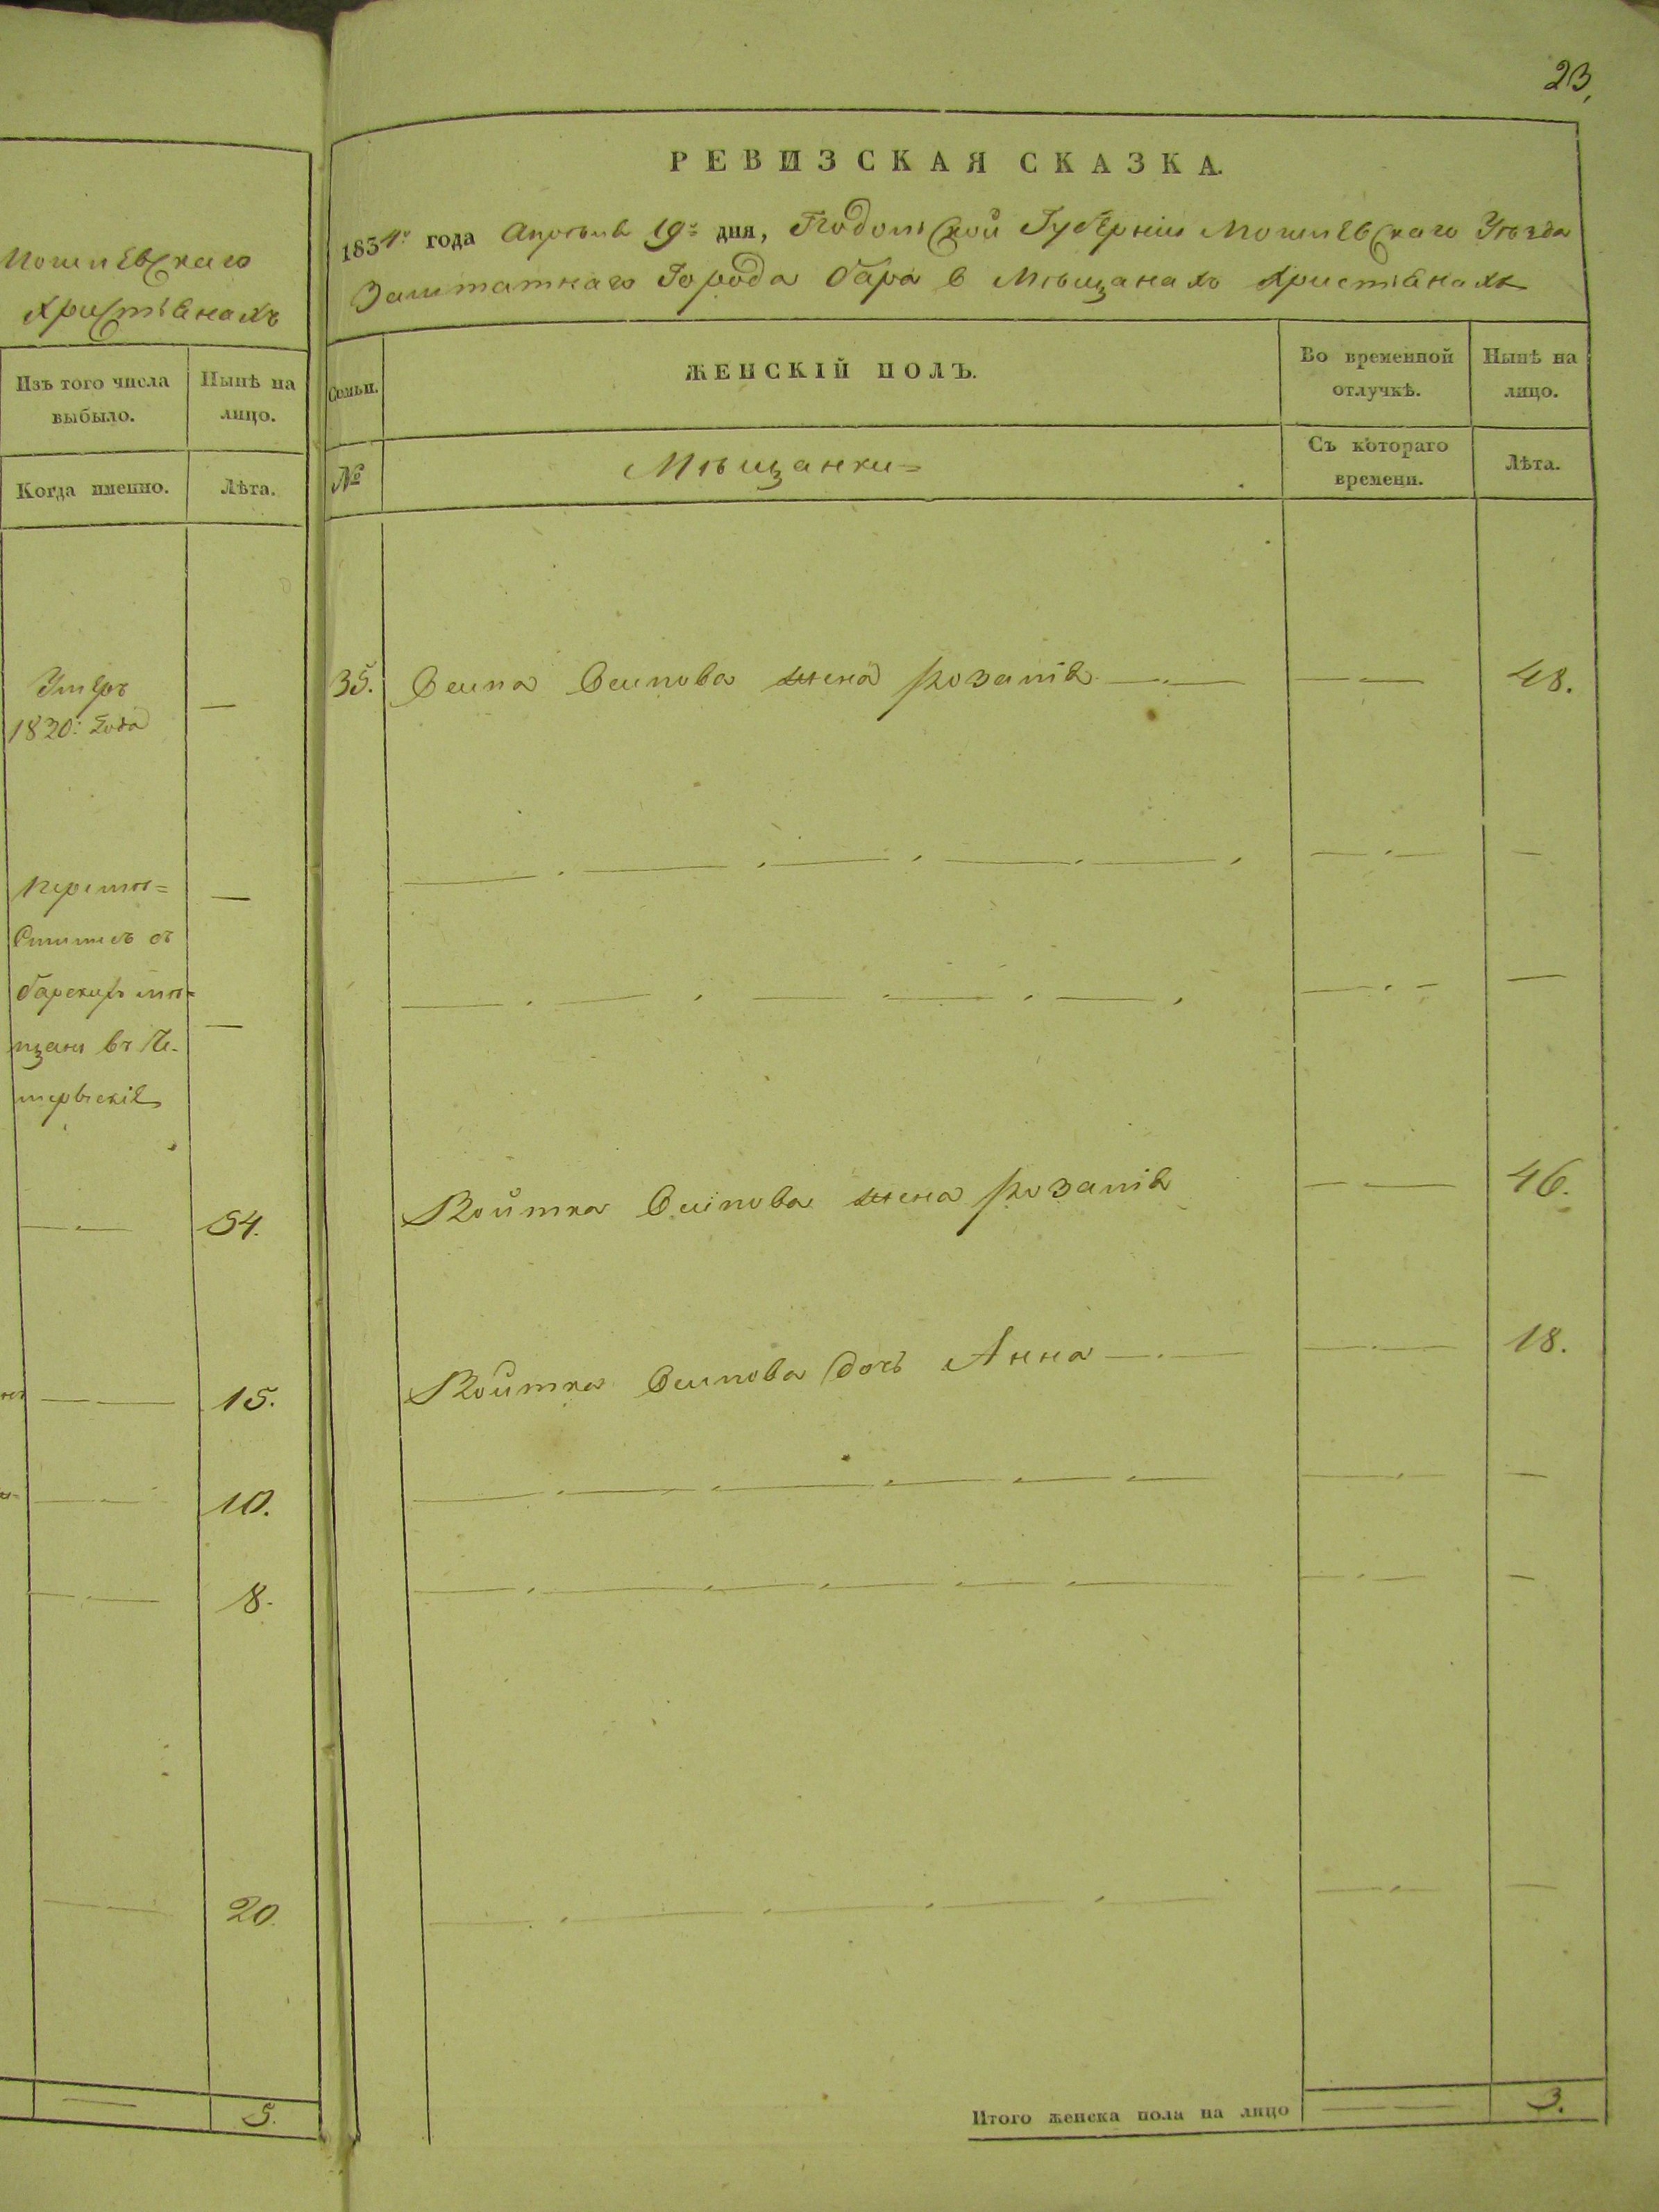 Могилевскаго
Христіанахъ
Изъ того числа
выбыло.
Нынѣ на
лицо.
Когда именно.
Лѣта.
Умеръ
1820: года
—
Перемѣ=
стились съ
барскихъ мѣ=
щанъ въ
—
—
54.
15.
10.
8.
20.
5.
23,
РЕВИЗСКАЯ СКАЗКА.
1834го года Апрѣля 19= дня, Подольской Губерніи Могилевскаго Уѣзда
Заштатнаго Города Бара в Мѣщанахъ Христіанахъ
Семьи.
ЖЕНСКІЙ ПОЛЪ.
Во временной
отлучкѣ.
Нынѣ на
лицо.
№
Мѣщанки=
Съ котораго
времени.
Лѣта.
35. Осипа Осипова жена Розалія 48.
Войтка Осипова жена Розалія 46.
Войтка Осипова дочь Анна 18.
Итого женска пола на лицо 3.